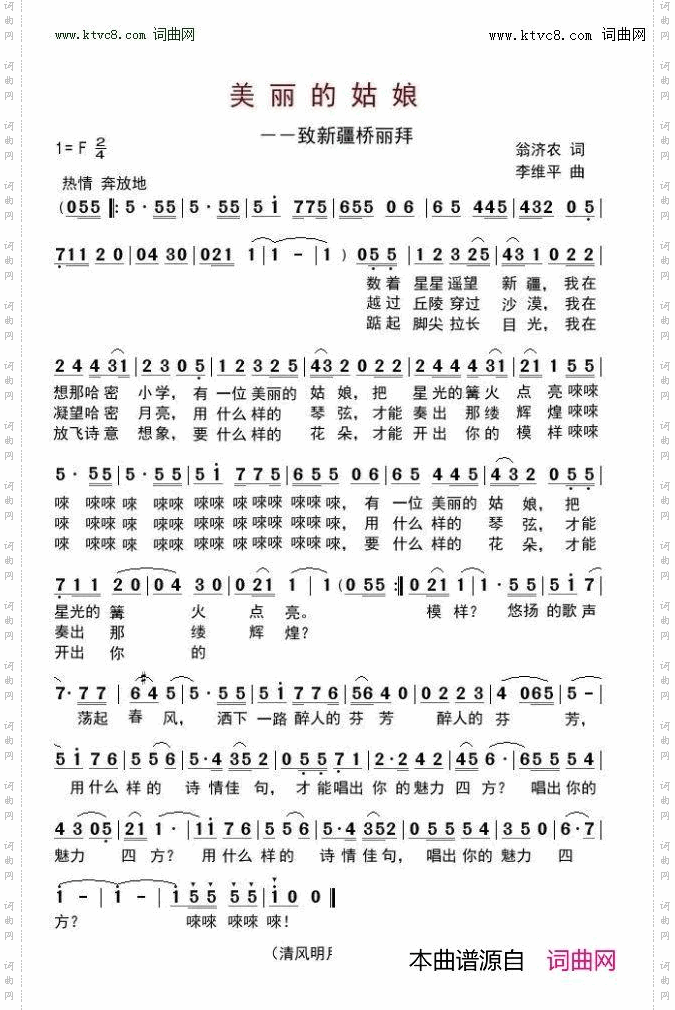 www.ktvc8.com 词曲网
www.ktvc8.com 词曲网
美丽的姑娘
——致新疆桥丽拜
1=F 2/4
翁济农 词
李维平 曲
热情 奔放地
(055 ‖: 5·55 | 5·55 | 5i 775 | 655 06 | 65 445 | 432 05 |
711 20 | 04 30 | 021 1 | 1 - | 1 ) 055 | 12325 | 431022 |
数着 星星遥望 新疆，我在
越过 丘陵穿过 沙漠，我在
踮起 脚尖拉长 目光，我在
24431 | 2305 | 12325 | 432022 | 24431 | 21 155 |
想那哈密 小学，有一位美丽的 姑娘，把 星光的篝火 点亮唻唻
凝望哈密 月亮，用什么样的 琴弦，才能 奏出那缕 辉煌唻唻
放飞诗意 想象，要什么样的 花朵，才能 开出你的 模样唻唻
5·55 | 5·55 | 5i 775 | 655 06 | 65 445 | 432 055 |
唻 唻唻 唻 唻唻 唻唻 唻唻唻 唻唻唻，有 一位 美丽的 姑 娘，把
唻 唻唻 唻 唻唻 唻唻 唻唻唻 唻唻唻，用 什么 样的 琴 弦，才能
唻 唻唻 唻 唻唻 唻唻 唻唻唻 唻唻唻，要 什么 样的 花 朵，才能
711 20 | 04 30 | 021 1 | 1 (055 :‖ 021 1 | 1·55 | 5i 7 |
星光的 篝 火 点 亮。 模 样？ 悠扬 的歌声
奏出 那 缕 辉 煌？
开出 你 的
7·77 | 6#45 | 5·55 | 5i 776 | 5640 | 0223 | 4 065 | 5 - |
荡起 春 风， 洒下 一路 醉人的 芬 芳 醉人的 芬 芳，
5i76 | 556 | 5·4352 | 05571 | 2·242 | 456· | 65554 |
用什么样的 诗情佳 句，才能唱出你的魅力 四方？ 唱出你的
4305 | 21 1· | 1i76 | 556 | 5·4352 | 05554 | 3050 | 6·7 |
魅力 四 方？ 用什么样的 诗情佳句，唱出你的 魅力 四
i - | i - | i 55 55 | i 0 0 ‖
方？ 唻唻 唻唻 唻！
(清风明月
本曲谱源自 词曲网
词曲网